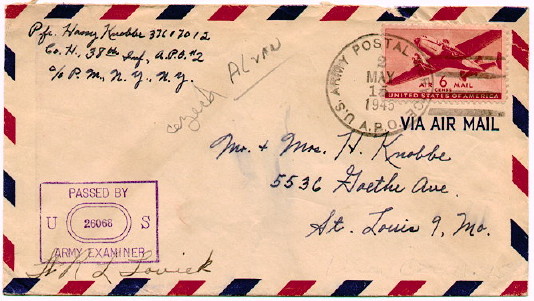 Pfc. Harry Knobbe 37617012
Co. H, 38th Inf, A.P.O. #2
c/o P.M., N.Y., N.Y.
Czech
ALVAN
U.S. ARMY POSTAL SERVICE
2
MAY
1945
A.P.O.
AIR 6 MAIL
CENTS
UNITED STATES OF AMERICA
VIA AIR MAIL
Mr. & Mrs. H. Knobbe
5536 Goethe Ave.
St. Louis 9, Mo.
PASSED BY
U 26066 S
ARMY EXAMINER